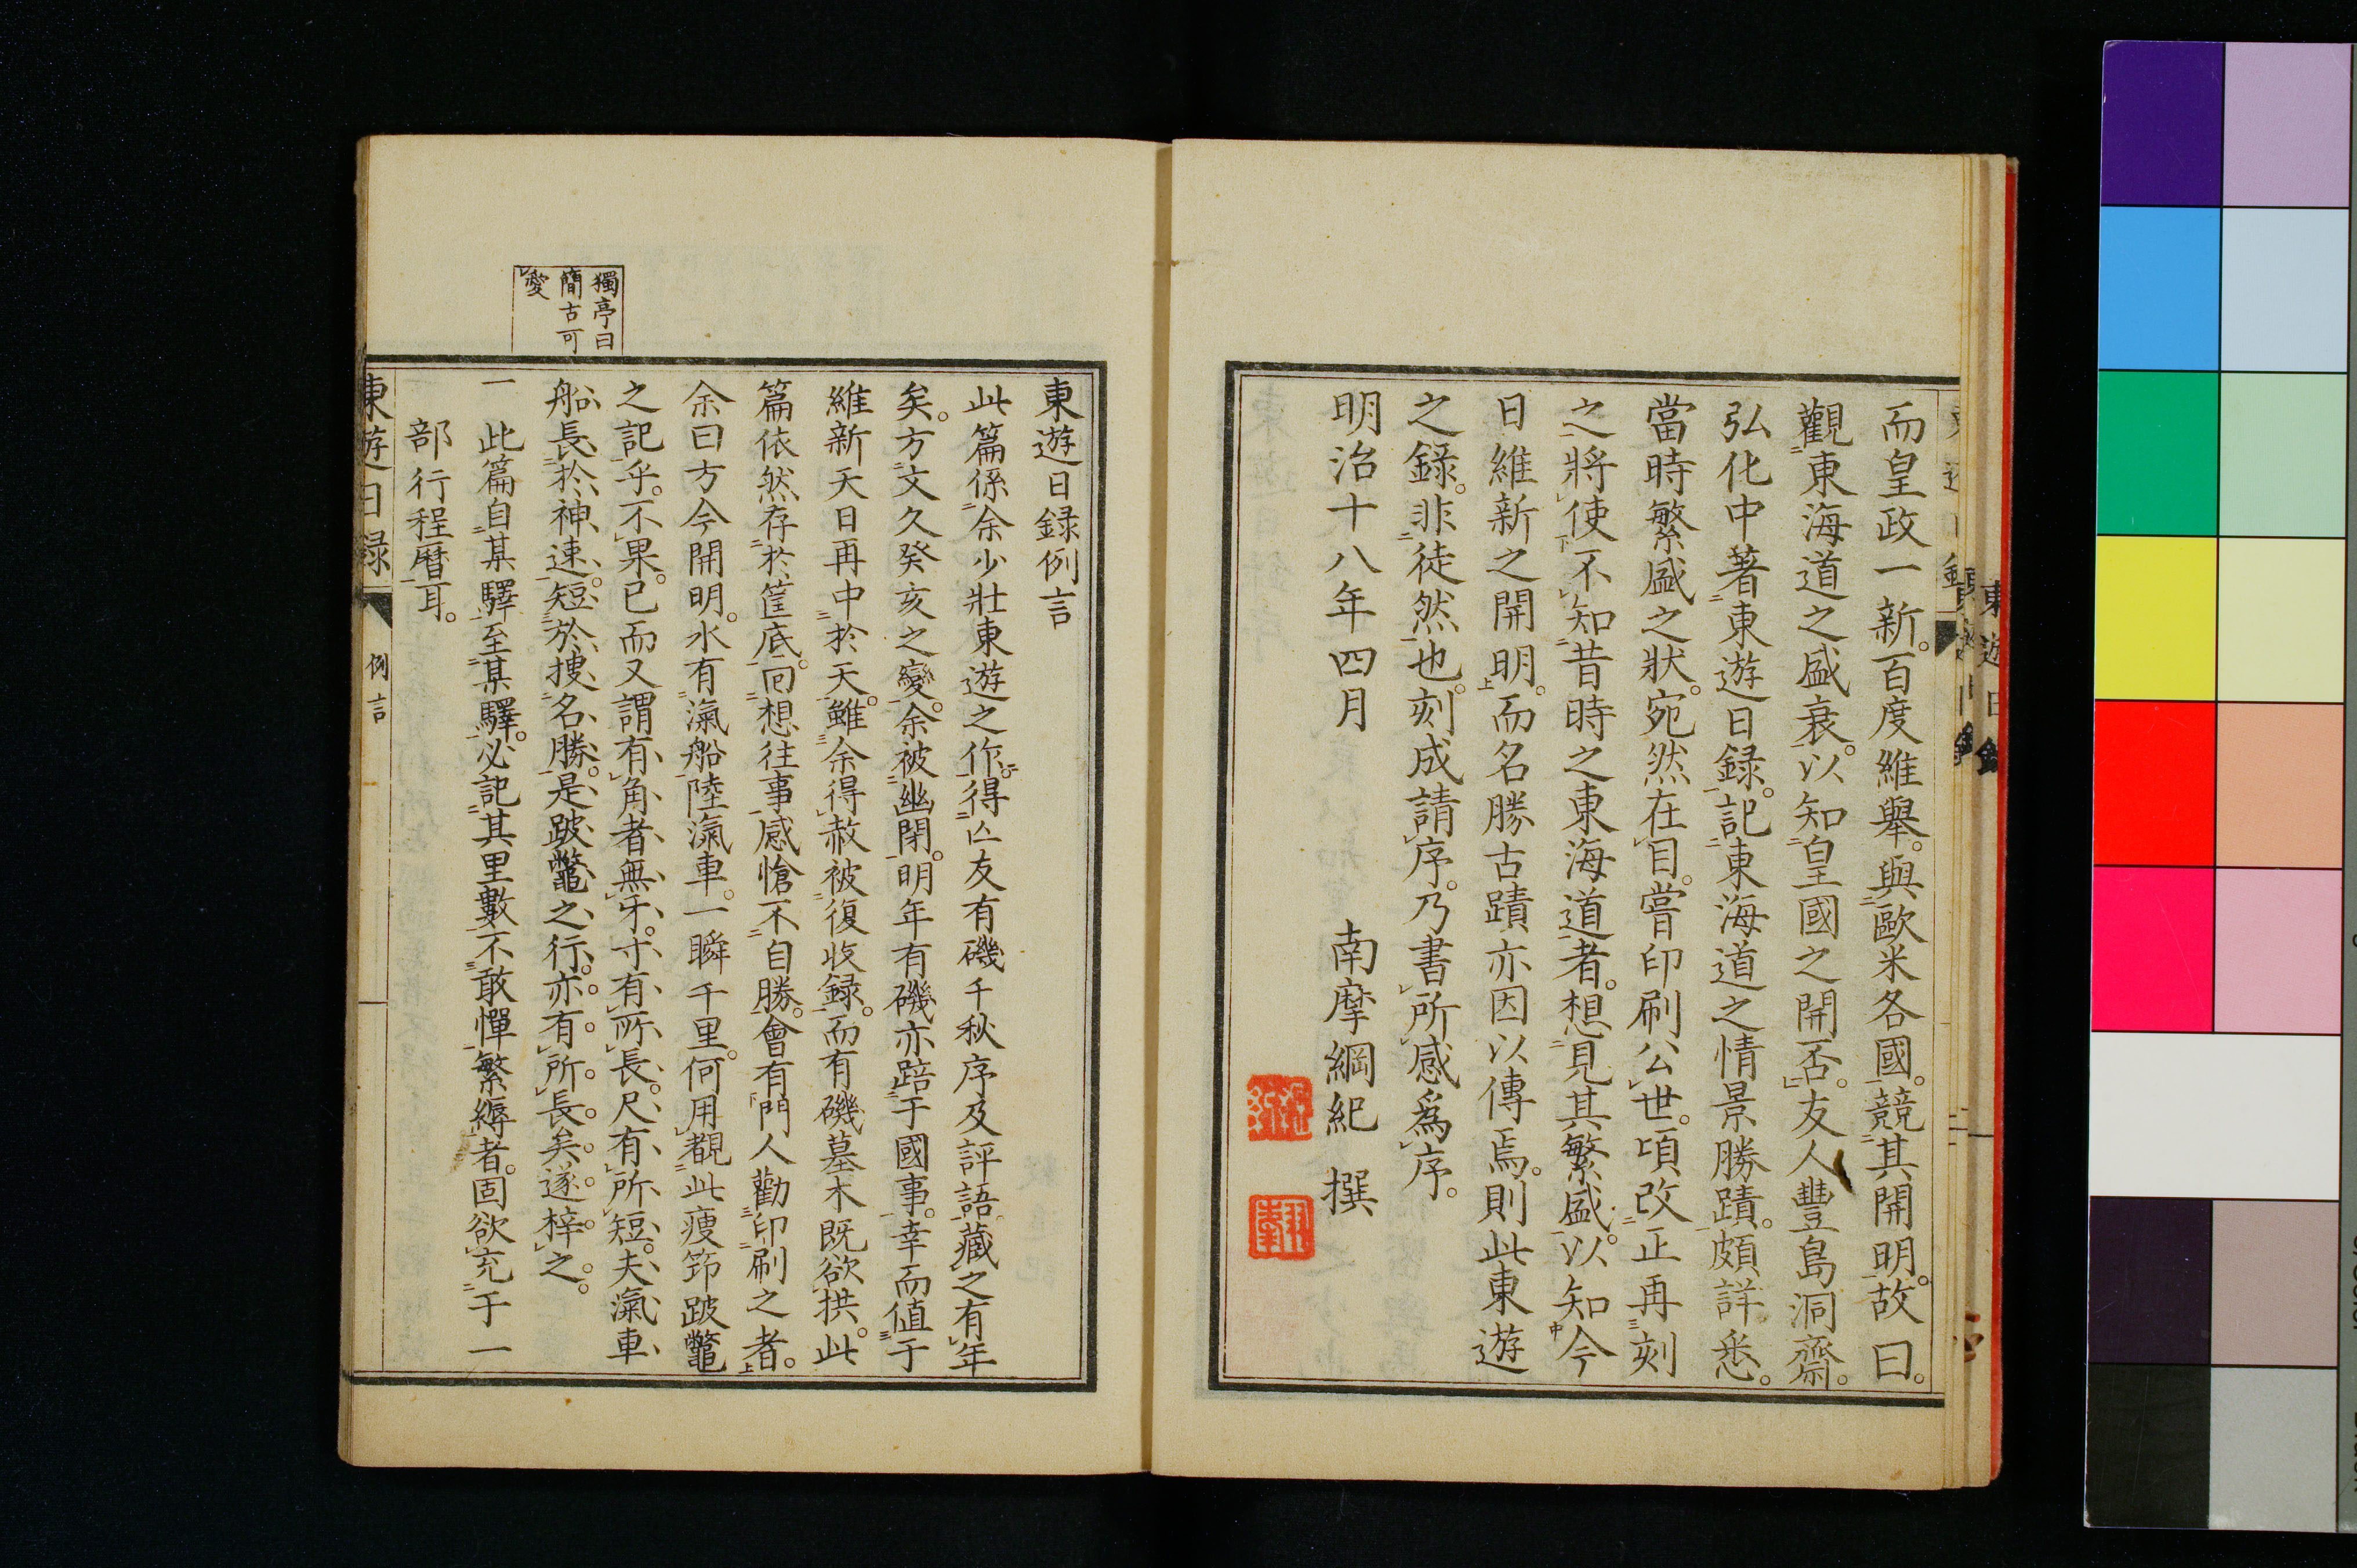 而皇政一新。百度維舉。與歐米各國。競其開明。故曰。
觀東海道之盛衰。以知皇國之開否。友人豐島洞齋。
弘化中著東遊日録。記東海道之情景勝蹟。頗詳悉。
當時繁盛之狀。宛然在目。嘗印刷公世。頃改正再刻
之將使不知昔時之東海道者。想見其繁盛。以知今
日維新之開明。而名勝古蹟亦因以傳焉。則此東遊
之錄。非徒然也。刻成請序。乃書所感爲序。
明治十八年四月
南摩綱紀 撰
東遊日録例言
此篇係余少壯東遊之作。得亡友有磯千秋序及評語藏之有年
矣。方文久癸亥之變。余被幽閉。明年有磯亦踣于國事。幸而値于
維新天日再中於天。雖余得赦被復收録。而有磯墓木既欲拱。此
篇依然存於筐底。回想往事感愴不自勝。會有門人勸印刷之者。
余曰方今開明。水有滊船陸滊車。一瞬千里。何用覩此痩筇跛鼈
之記乎。不果。已而又謂有角者無牙。寸有所長。尺有所短。夫滊車
船長於神速。短於捜名勝。是跛鼈之行。亦有所長矣。遂梓之。
獨亭曰
簡古可
愛
一 此篇自某驛至某驛。必記其里數不敢憚繁縟者。固欲充于一
部行程暦耳。
東遊日録
例言